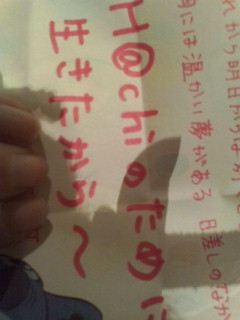 れから明日からはが
明には温かい夢がある 日差しのなか
H@chiのために
生きたから〜